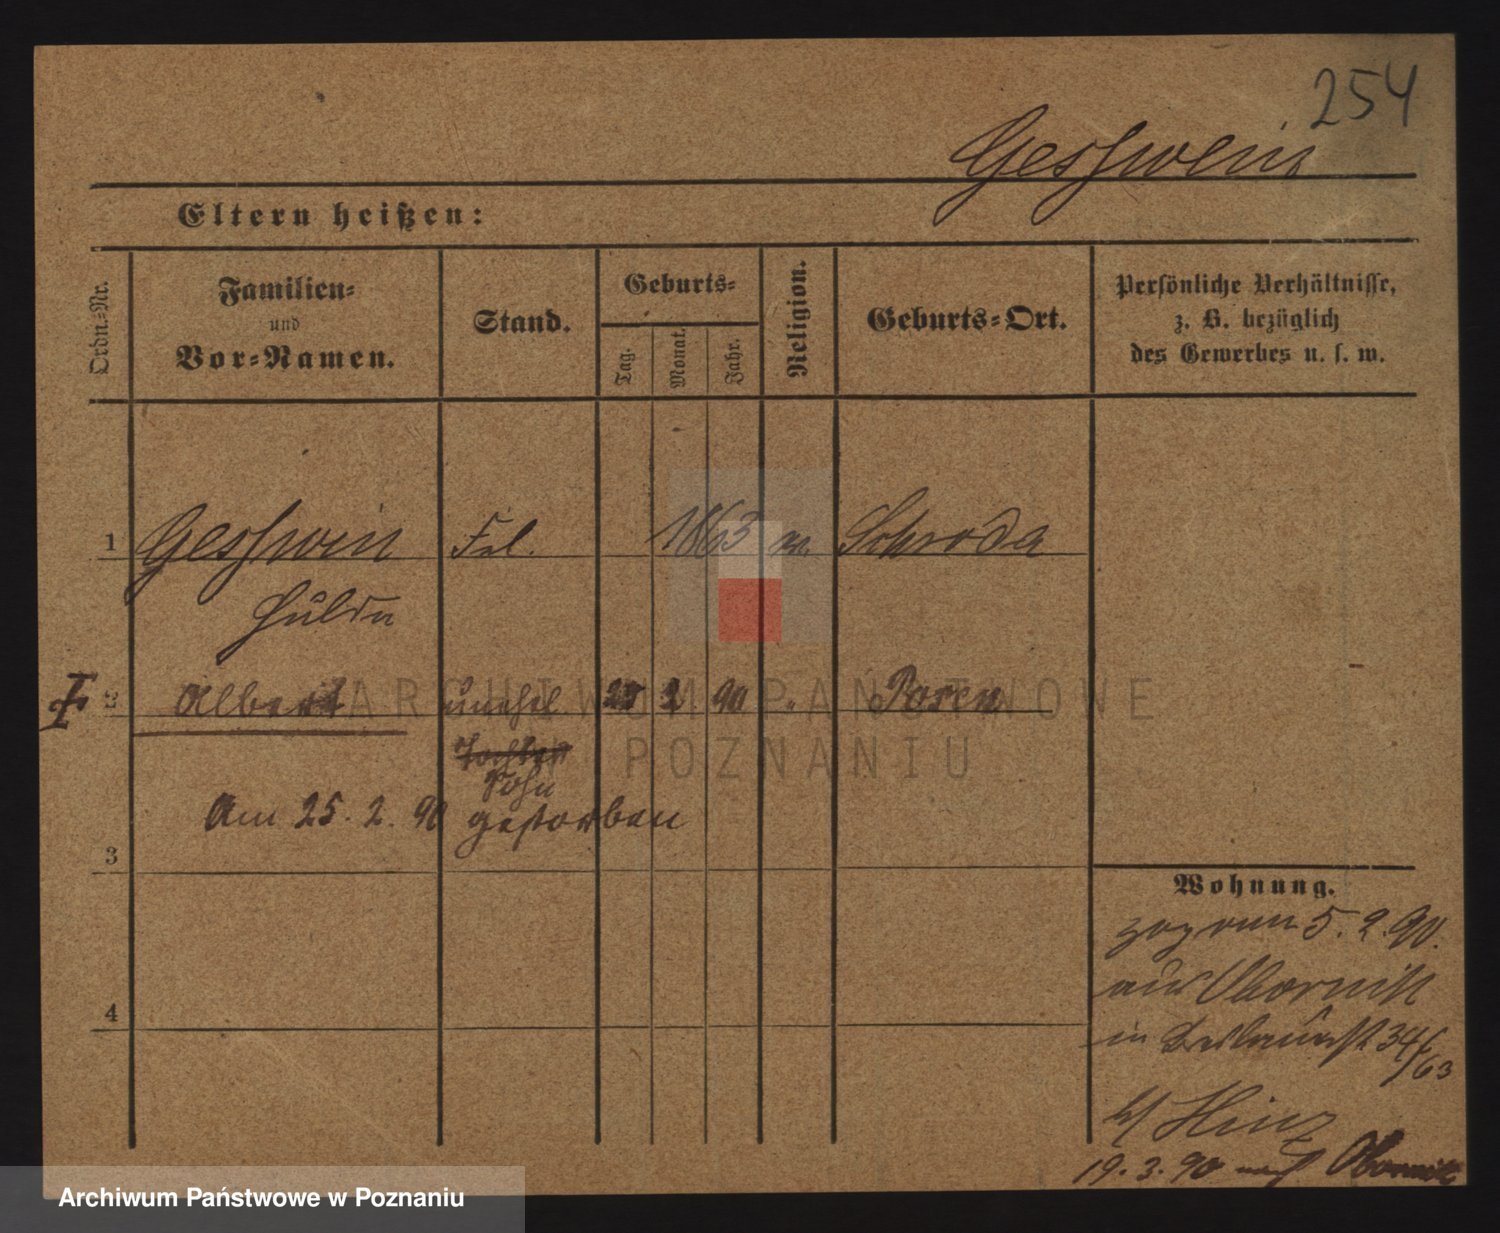 254
Geschwein
Eltern heißen:
Ordn.-Nr.
Familien-
und
Vor-Namen.
Stand.
Geburts-
Tag.
Monat.
Jahr.
Religion.
Geburts-Ort.
Persönliche Verhältnisse,
z. B. bezüglich
des Gewerbes u. s. w.
1 Frl. 1863 Schroda
Hulda
2 Albert unehel 2 90 " Posen
Tochter
Sohn
Am 25. 2. 90 gestorben
3
Wohnung.
zog am 5. 2. 90.
aus Obornik
4
in 34/63
b/ Hinz
19. 3. 90 nach Obornik
ARCHIWUM PAŃSTWOWE
W POZNANIU
Archiwum Państwowe w Poznaniu